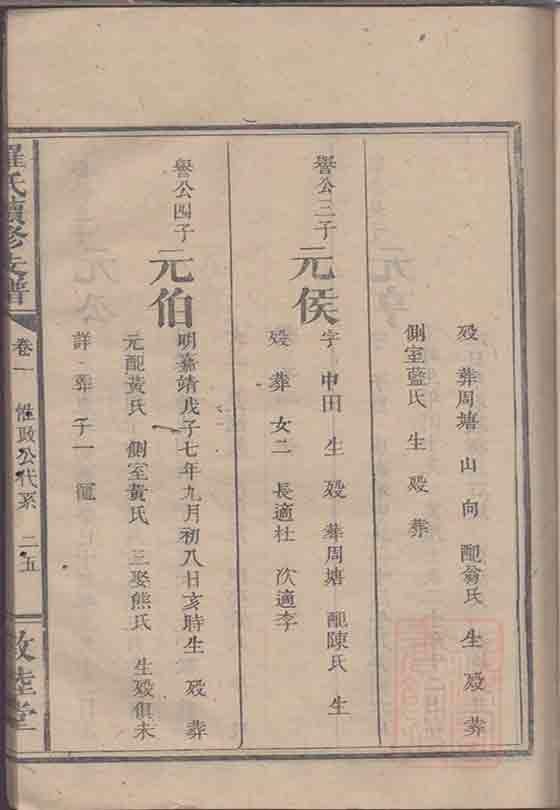 歿 葬周塘 山 向 配翁氏 生 歿 葬
側室藍氏 生 歿 葬
譽公三子
元侯
字 中田 生 歿 葬周塘 配陳氏 生
歿 葬 女二 長適杜 次適李
譽公四子
元伯
明嘉靖戊子七年九月初八日亥時生 歿 葬
元配黃氏 側室黃氏 三娶熊氏 生歿俱未
詳 葬 子一
羅氏續修支譜
卷一 惟政公代系 二五
敦睦堂